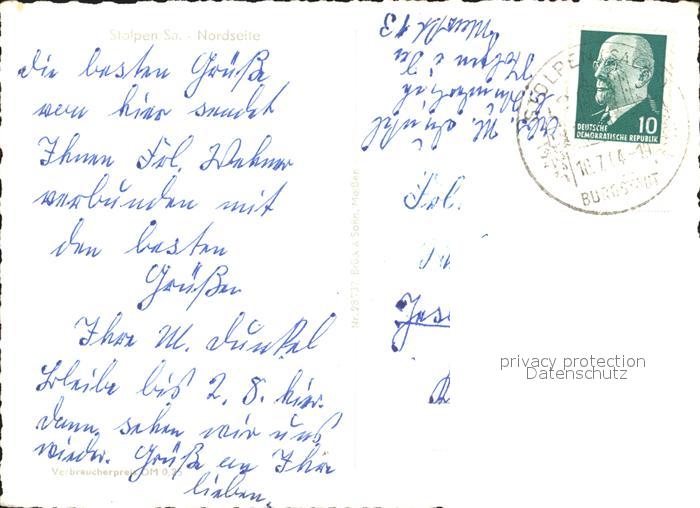 Stolpen Sa. - Nordseite
Die besten Grüße
von hier sendet
Ihnen Frl. Wehner
verbunden mit
den besten
Grüßen
Ihre M. Dunkel
Bleibe bis 2. 8. hier.
dann sehen wir uns
wieder. Grüße an Ihre
lieben.
Verbraucherpreis DM 0,2
Nr. 28737 Brück & Sohn, Meißen
Frl. M. Dunkel
Stolpen
13
DEUTSCHE
DEMOKRATISCHE REPUBLIK
10
STOLPEN
BURGSTADT
Frl.
privacy protection
Datenschutz